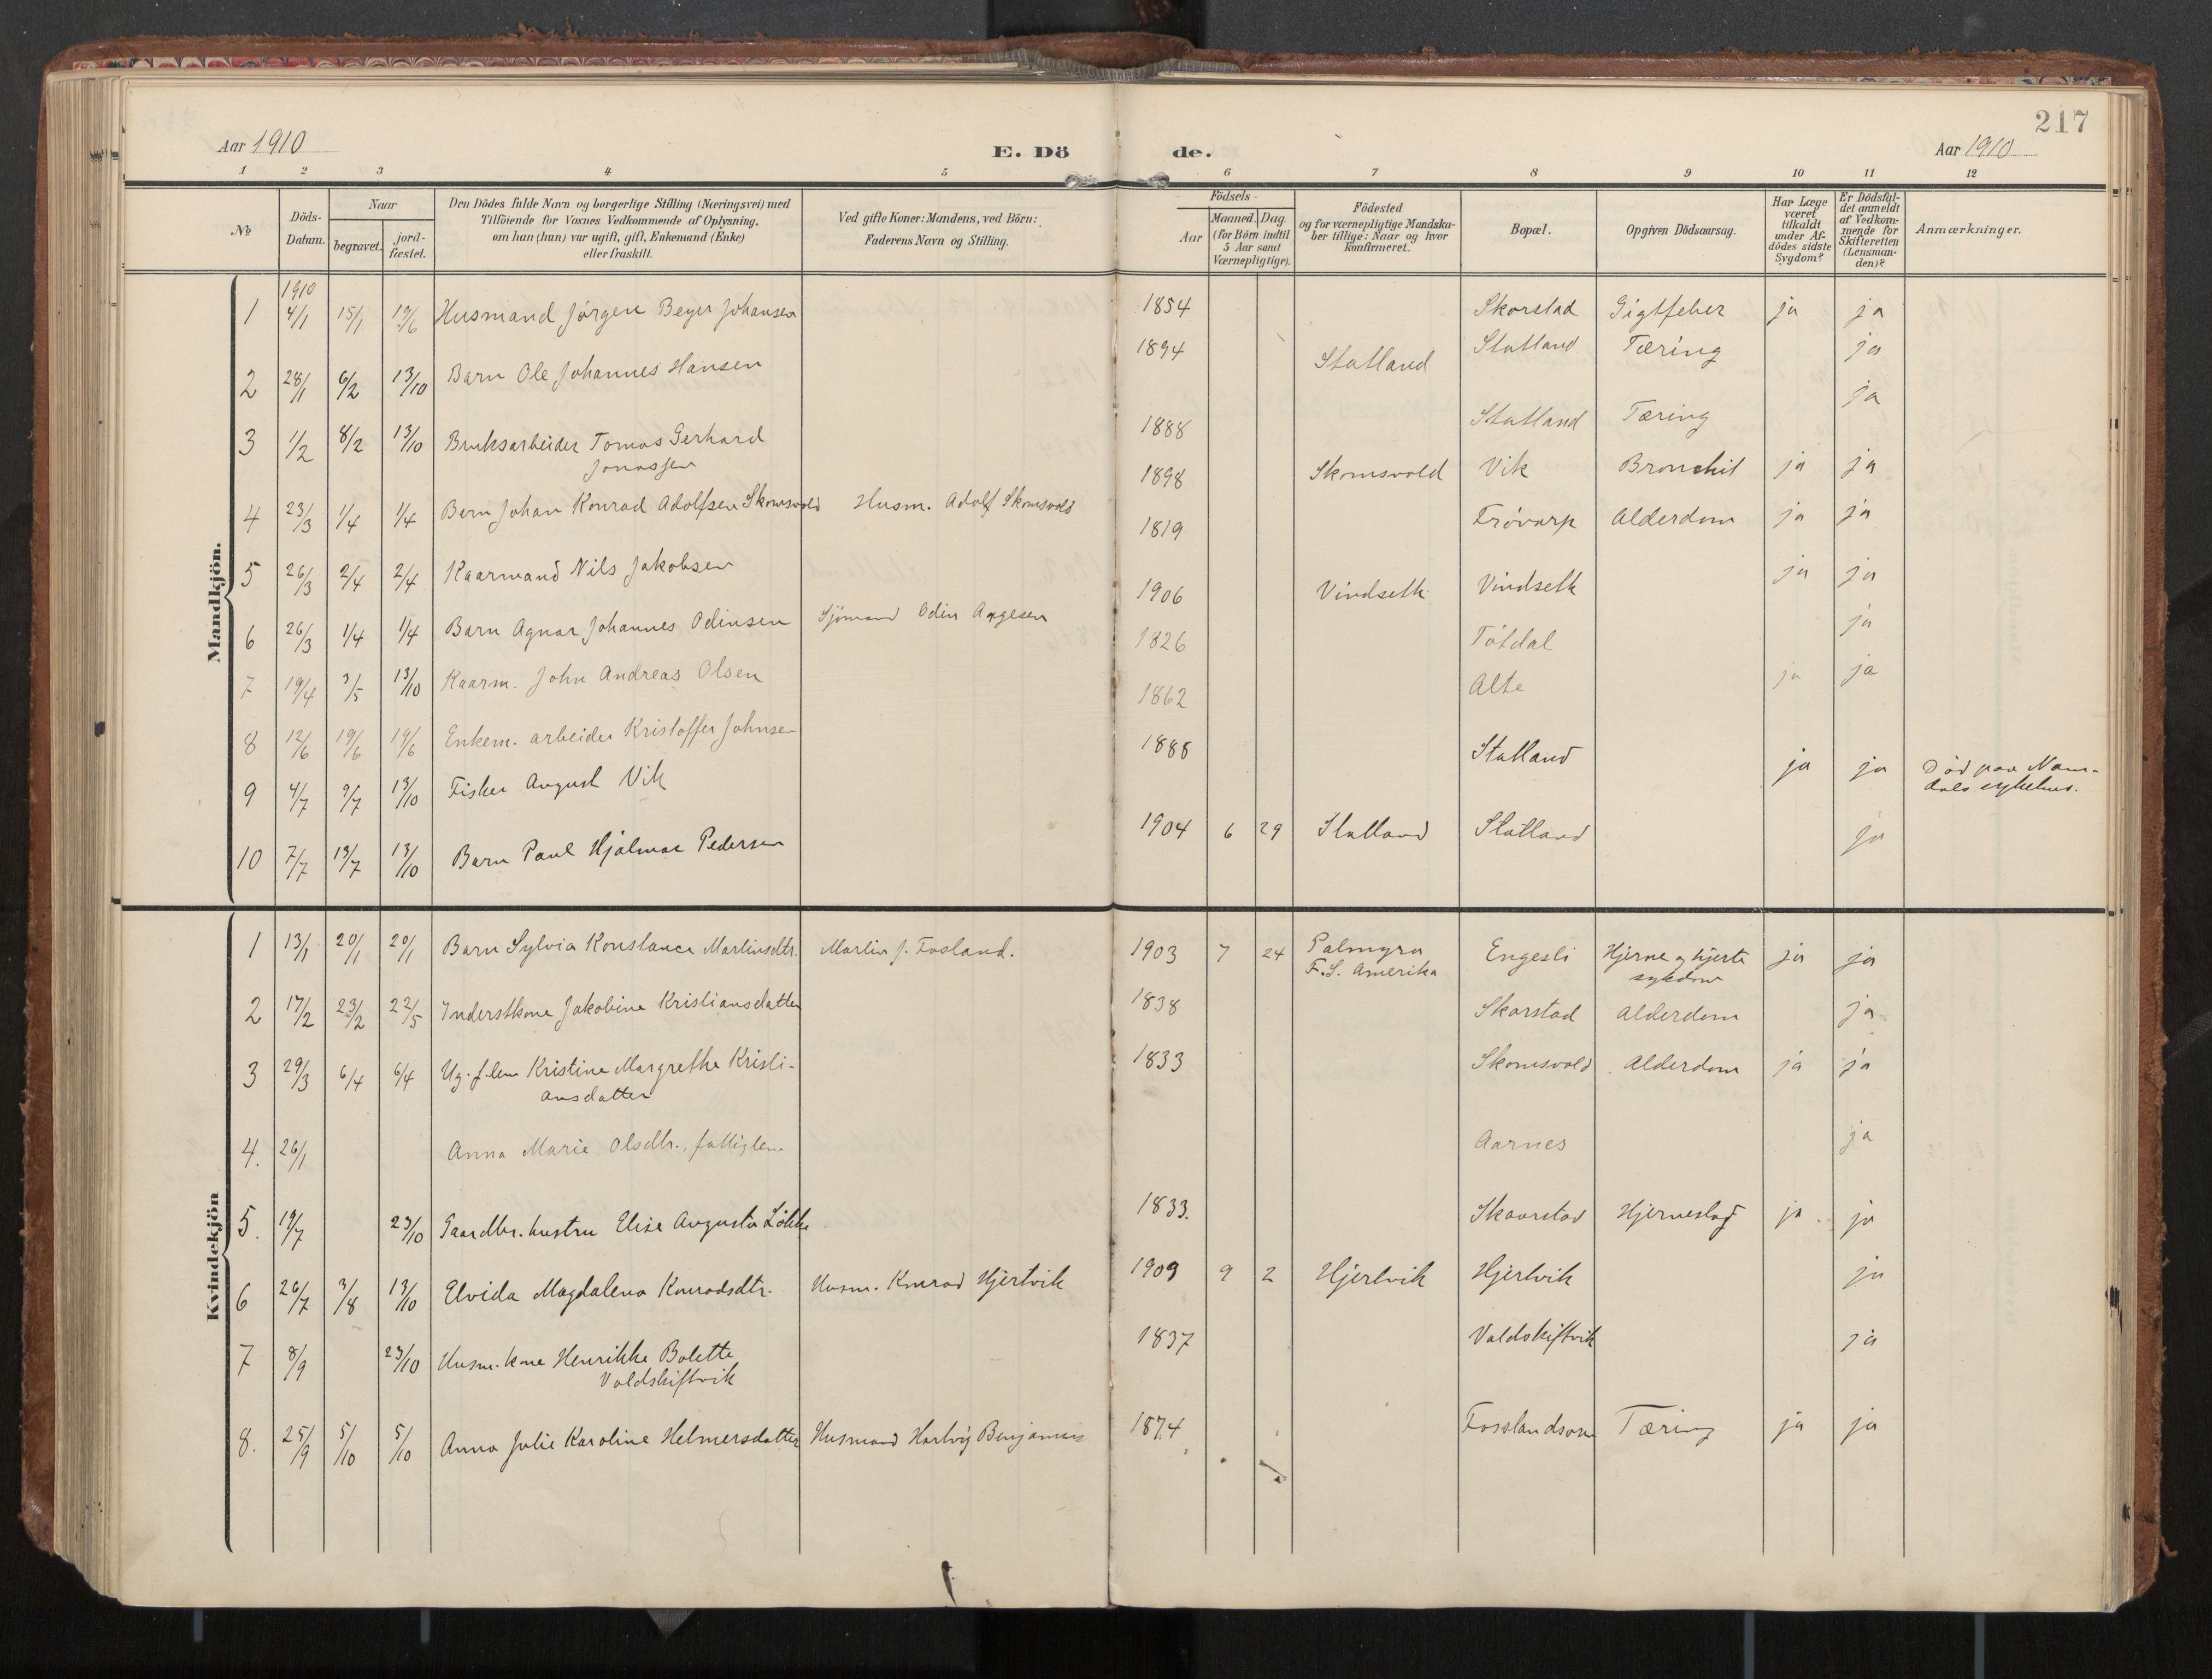 217
Aar 1910
E. Dö
de.
Aar 1910
1 2 3 4 5 6 7 8 9 10 11 12
№
Döds-
Datum.
Naar
begravet.
jord-
fæstet.
Den Dödes fulde Navn og borgerlige Stilling (Næringsvei) med
Tilföiende for Voxnes Vedkommende af Oplysning,
om han (hun) var ugift, gift, Enkemand (Enke)
eller fraskilt.
Ved gifte Koner: Mandens, ved Börn:
Faderens Navn og Stilling.
Födsels-
Aar
Maaned. Dag.
(for Börn indtil
5 Aar samt
Værnepligtige).
Födested
og for værnepligtige Mandska-
ber tillige: Naar og hvor
konfirmeret.
Bopæl.
Opgiven Dödsaarsag.
Har Læge
været
tilkaldt
under Af-
dödes sidste
Sygdom?
Er Dödsfal-
det anmeldt
af Vedkom-
mende for
Skifteretten
(Lensman-
den)?
Anmærkninger.
Mandkjön.
1910
1 4/1 15/1 19/6 Husmand Jörgen Beyer Johansen 1854 Skorstad Gigtfeber ja ja
2 28/1 6/2 13/10 Barn Ole Johannes Hansen 1894 Statland Statland Tæring ja
3 1/2 8/2 13/10 Bruksarbeider Tomas Gerhard
Jonassen 1888 Statland Tæring ja
4 23/3 1/4 1/4 Barn Johan Konrad Adolfsen Skomsvold Husm. Adolf Skomsvold 1898 Skomsvold Vik Bronchit ja ja
5 26/3 2/4 2/4 Kaarmand Nils Jakobsen 1819 Frövarp Alderdom ja ja
6 26/3 1/4 1/4 Barn Agnar Johannes Odinsen Sjömand Odin Aagesen 1906 Vindseth Vindseth ja ja
7 19/4 3/5 13/10 Kaarm. John Andreas Olsen 1826 Tötdal ja
8 12/6 19/6 19/6 Enkem. arbeider Kristoffer Johnsen 1862 Alte ja ja
9 4/7 9/7 13/10 Fisker August Vik 1888 Statland ja ja Död paa Nam-
dals sykehus.
10 7/7 13/7 13/10 Barn Paul Hjalmar Pedersen 1904 6 29 Statland Statland ja
Kvindekjön
1 13/1 20/1 20/1 Barn Sylvia Konstance Martinsdtr. Martin J. Fosland. 1903 7 24 Palmyra
F.S. Amerika Engesli Hjerne og hjerte
sygdom ja ja
2 17/2 23/2 22/5 Inderstkone Jakobine Kristiansdatter 1838 Skorstad Alderdom ja
3 29/3 6/4 6/4 Ug. f.lem Kristine Margrethe Kristi-
ansdatter 1833 Skomsvold Alderdom ja ja
4. 26/1 Anna Marie Olsdtr., fattiglem Aarnes ja
5. 19/7 23/10 Gaardbr. hustru Elise Augusta Lökke 1833. Skaarstad Hjerneslag ja ja
6 26/7 3/8 13/10 Elvida Magdalena Konradsdtr. Husm. Konrad Hjertvik 1909 9 2 Hjertvik Hjertvik ja
7 8/9 23/10 Husm. kone Henrikke Bolette
Valdskiftvik 1837 Valdskiftvik ja
8. 25/9 5/10 5/10 Anna Julie Karoline Helmersdatter Husmand Hartvig 1874 Tæring ja ja